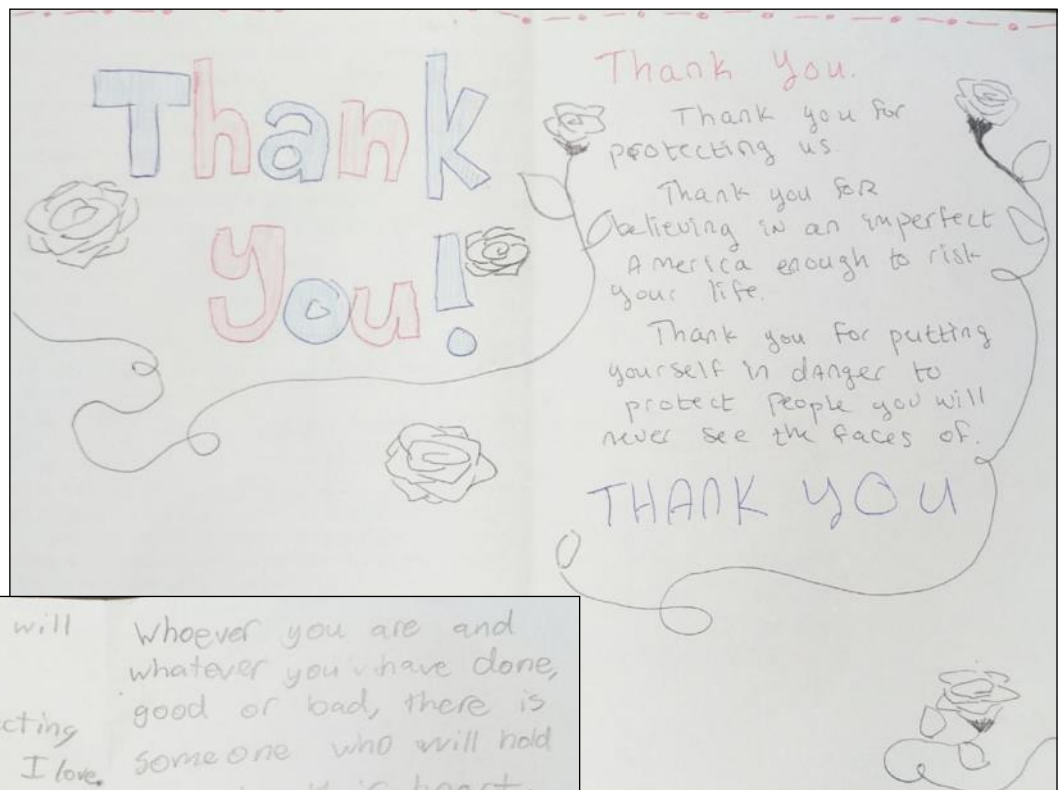 Thank
you!
Thank you.
Thank you for
protecting us
Thank you for
believing in an imperfect
America enough to risk
your life.
Thank you for putting
yourself in danger to
protect people you will
never see the faces of.
THANK YOU
will
I love
Whoever you are and
whatever you have done,
good or bad, there is
someone who will hold
heart